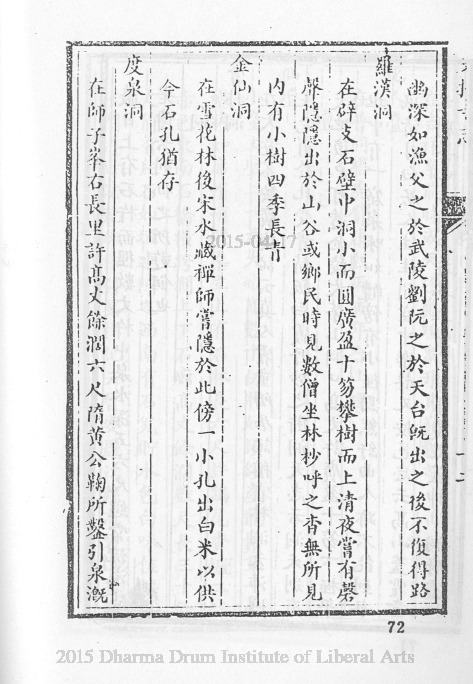 幽深如漁父之於武陵劉阮之於天台既出之後不復得路
羅漢洞
在辟支石壁中洞小而圓廣盈十笏攀樹而上清夜嘗有磬
聲隱隱出於山谷或鄉民時見數僧坐林杪呼之杳無所見
內有小樹四季長青
金仙洞
在雪花林後宋水藏禪師嘗隱於此傍一小孔出白米以供
今石孔猶存
度泉洞
在師子峯右長里許髙丈餘濶六尺隋黄公鞠所鑿引泉溉
72
2015 Dharma Drum Institute of Liberal Arts